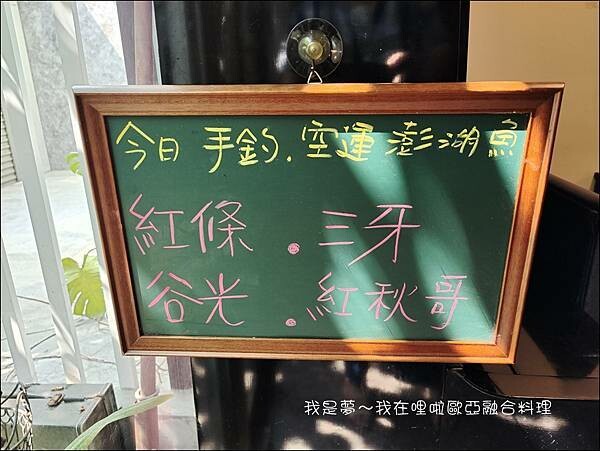 今日 手釣.空運 澎湖魚
紅條.三牙
谷光.紅秋哥
我是夢～我在哩啦歐亞融合料理